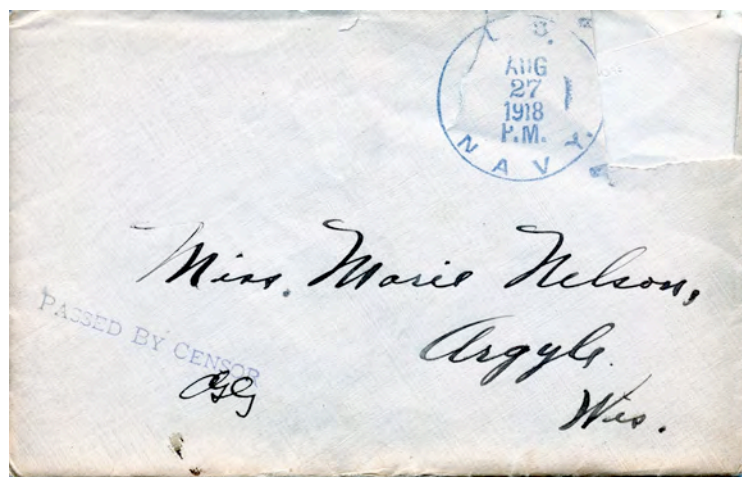 U. S.
AUG
27
1918
P.M.
NAVY.
Miss. Marie Nelson,
Argyle.
Wis.
PASSED BY CENSOR